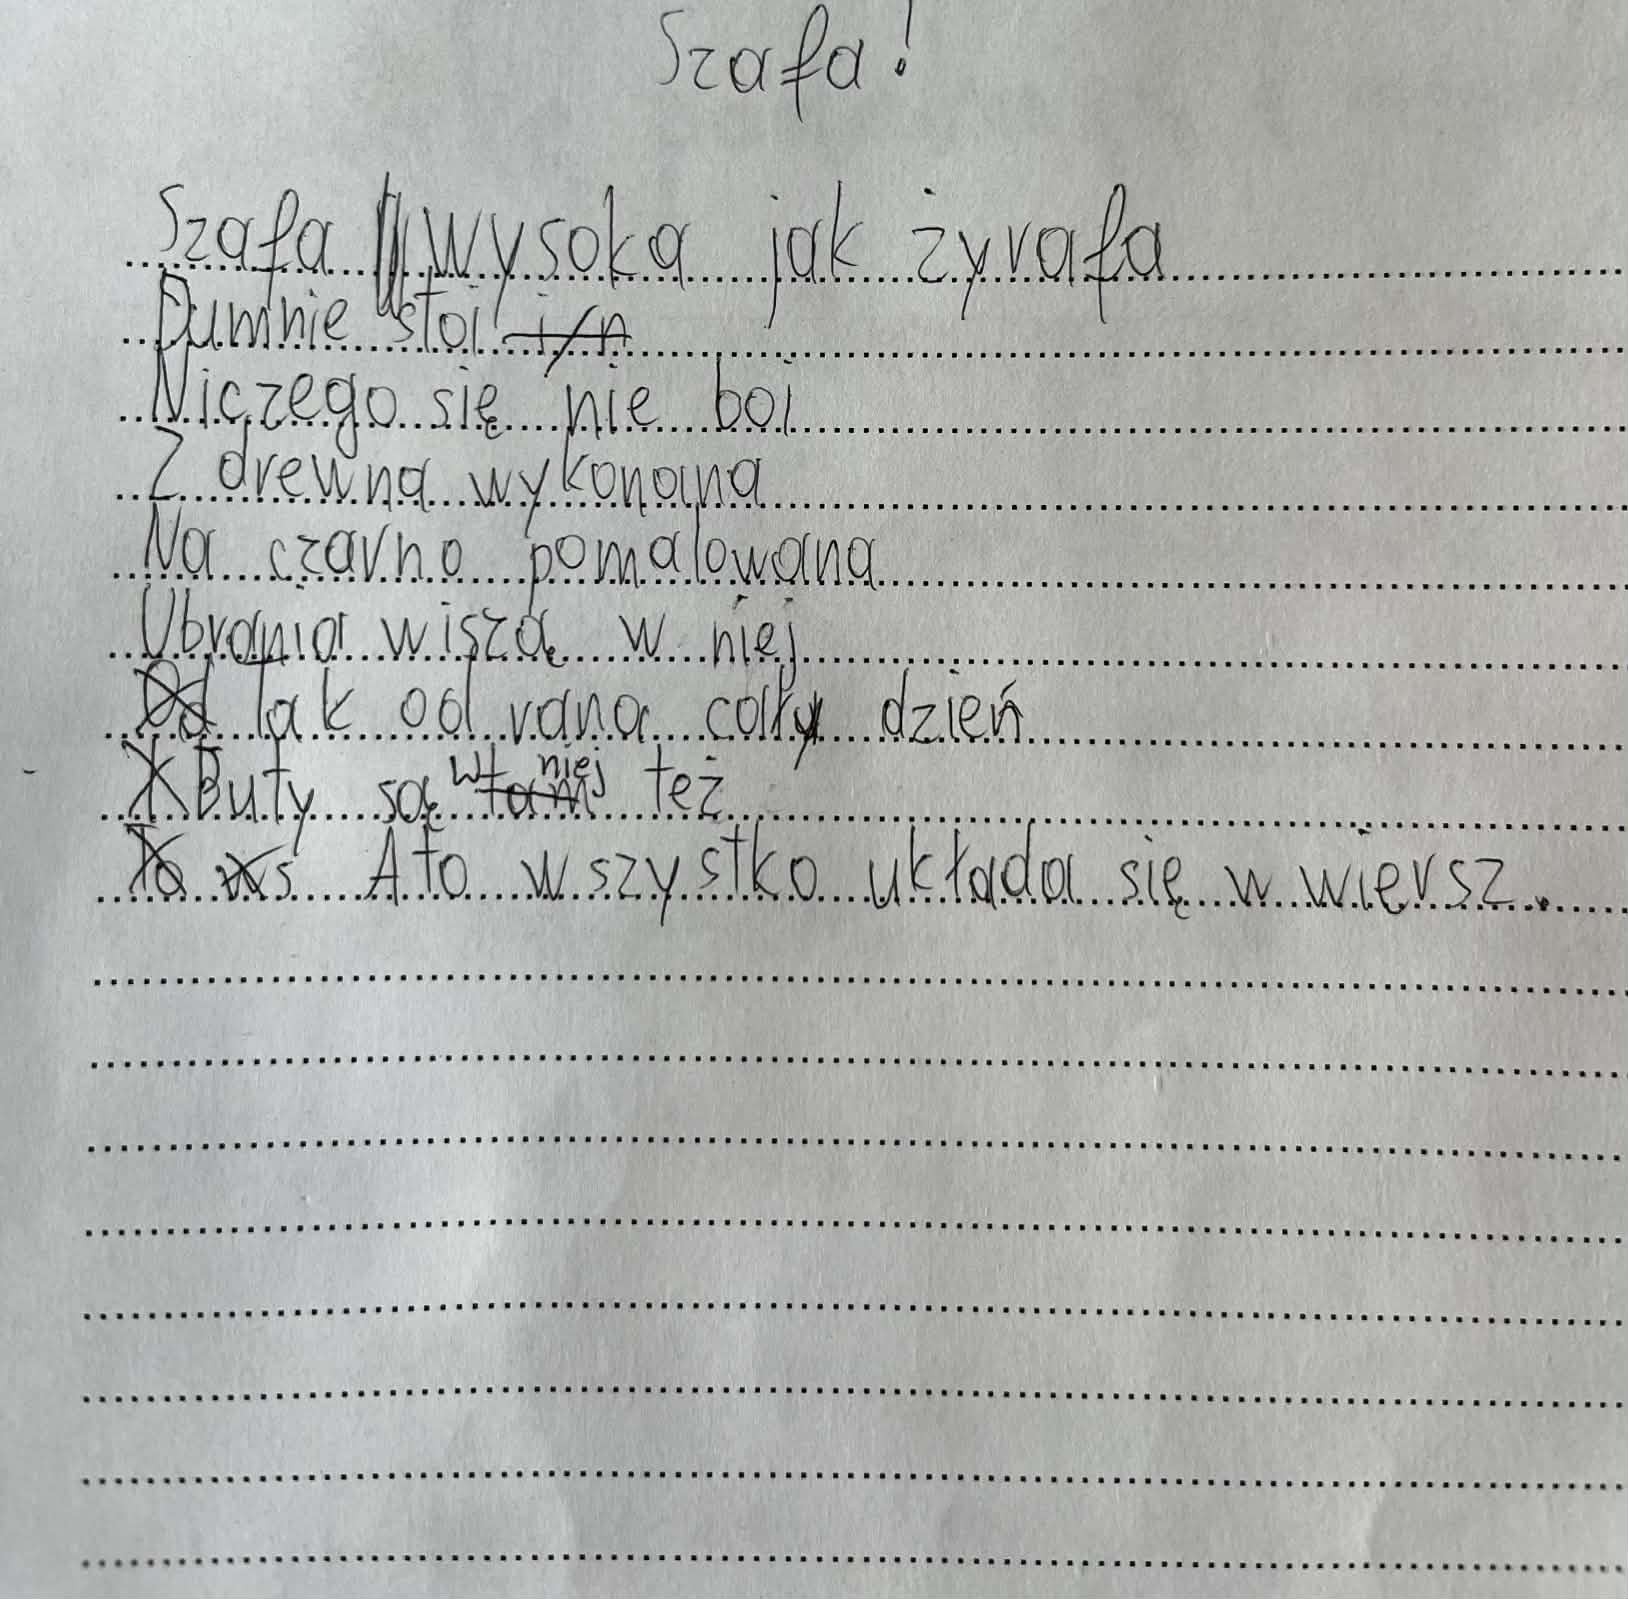 Szafa!
Szafa wysoka jak żyrafa
Dumnie stoi
Niczego się nie boi
Z drewna wykonana
Na czarno pomalowana
Ubrania wiszą w niej
Tak od rana cały dzień
Buty są w niej też
A to wszystko układa się w wiersz.